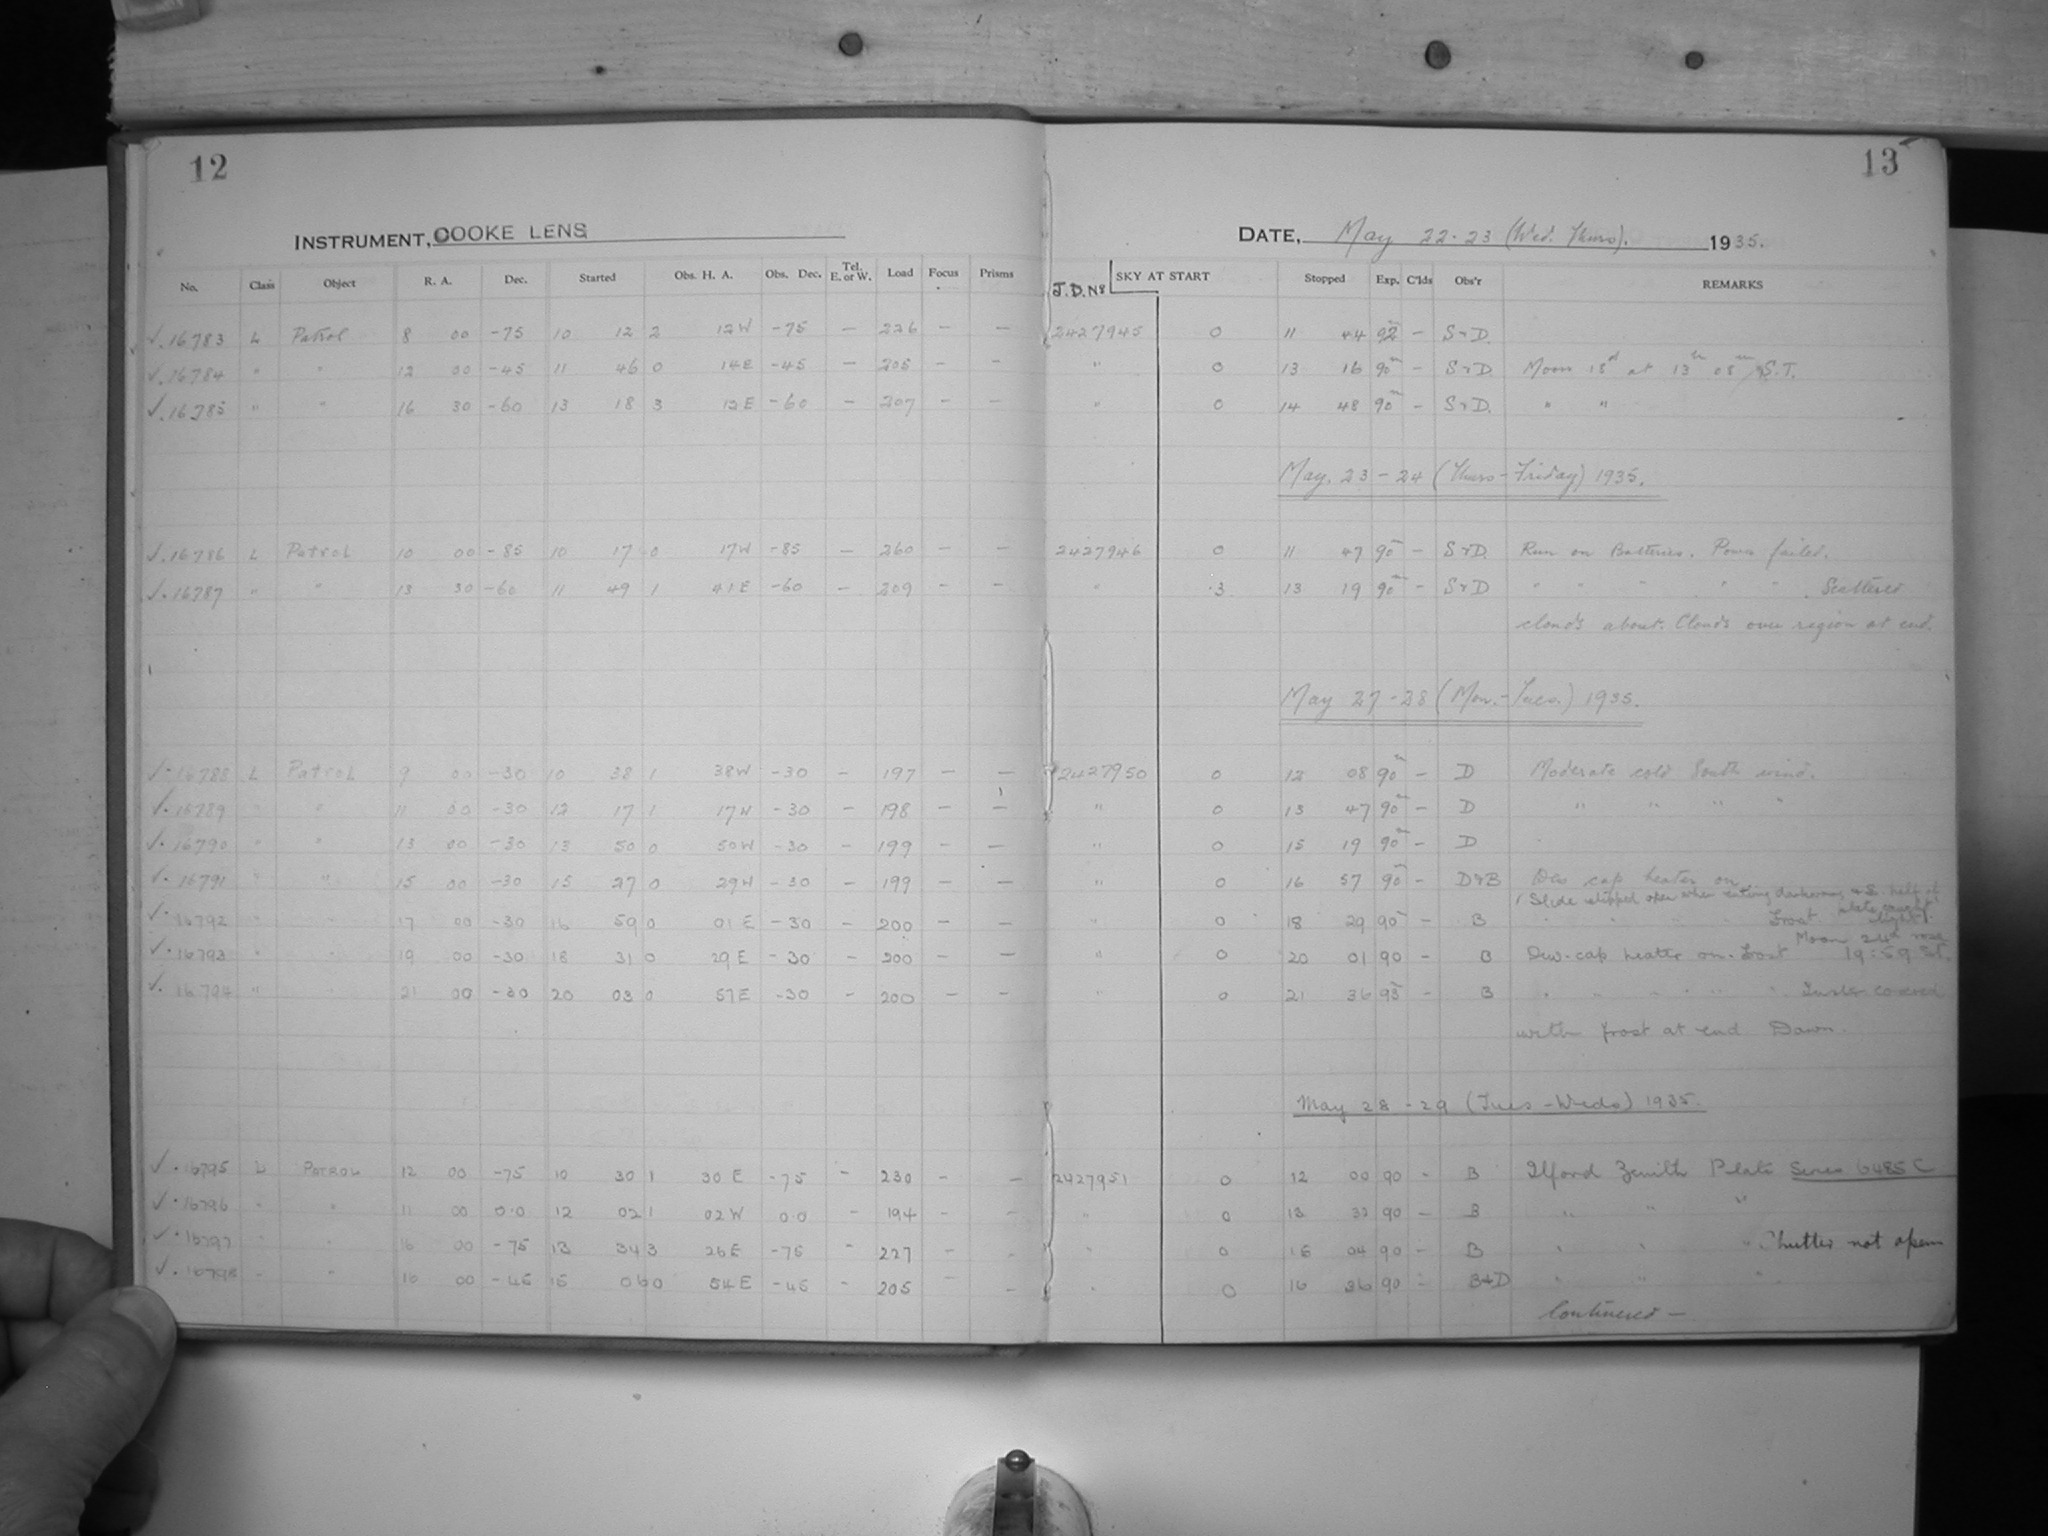 12
13
INSTRUMENT, COOKE LENS
DATE, May 22-23 (Wed. Thurs). 1935.
No. Class Object R. A. Dec. Started Obs. H. A. Obs. Dec. Tel. E. or W. Load Focus Prisms J.D. No SKY AT START Stopped Exp. C'lds Obs'r REMARKS
✓.16783 L Patrol 8 00 -75 10 12 2 12W -75 — 226 — — 2427945 0 11 44 92m — S&D.
✓.16784 " " 12 00 -45 11 46 0 14E -45 — 205 — — " 0 13 16 90m — S&D. Moon 18d at 13h 08m S.T.
✓.16785 " " 16 30 -60 13 18 3 12E -60 — 207 — — " 0 14 48 90m — S&D. " "
May. 23-24 (Thurs-Friday) 1935.
✓.16786 L Patrol 10 00 -85 10 17 0 17W -85 — 260 — — 2427946 0 11 47 90m — S&D. Run on Batteries. Power failed.
✓.16787 " " 13 30 -60 11 49 1 41E -60 — 209 — — " .3 13 19 90m — S&D " " " " " . Scattered
clouds about. Clouds over region at end.
May 27-28 (Mon.-Tues.) 1935.
✓.16788 L Patrol 9 00 -30 10 38 1 38W -30 — 197 — — 2427950 0 12 08 90m — D Moderate cold South wind.
✓.16789 " " 11 00 -30 12 17 1 17W -30 — 198 — — " 0 13 47 90m — D " " " "
✓.16790 " " 13 00 -30 13 50 0 50W -30 — 199 — — " 0 15 19 90m — D
✓.16791 " " 15 00 -30 15 27 0 29W -30 — 199 — — " 0 16 57 90m — D&B Dew cap heater on
(Slide slipped open when entering darkroom, & S. half of plate caught light).
✓.16792 " " 17 00 -30 16 59 0 01E -30 — 200 — — " 0 18 29 90m — B " " " Frost
Moon 24d rose 19:59 St.
✓.16793 " " 19 00 -30 18 31 0 29E -30 — 200 — — " 0 20 01 90 — B Dew-cap heater on. Frost
✓.16794 " " 21 00 -30 20 03 0 57E -30 — 200 — — " 0 21 36 93m — B " " " " " " covered
with frost at end Dawn.
May 28-29 (Tues-Weds) 1935.
✓.16795 L PATROL 12 00 -75 10 30 1 30E -75 — 230 — — 2427951 0 12 00 90 - B Ilford Zenith Plate Series 6485C
✓.16796 " " 11 00 0.0 12 02 1 02W 0.0 — 194 — — " 0 13 32 90 — B " " "
✓.16797 " " 16 00 -75 13 34 3 26E -75 — 227 — - " 0 15 04 90 — B " " " Shutter not open
✓.16798 " " 16 00 -45 15 06 0 54E -45 — 205 — - " 0 16 36 90 - B&D " " "
Continued —